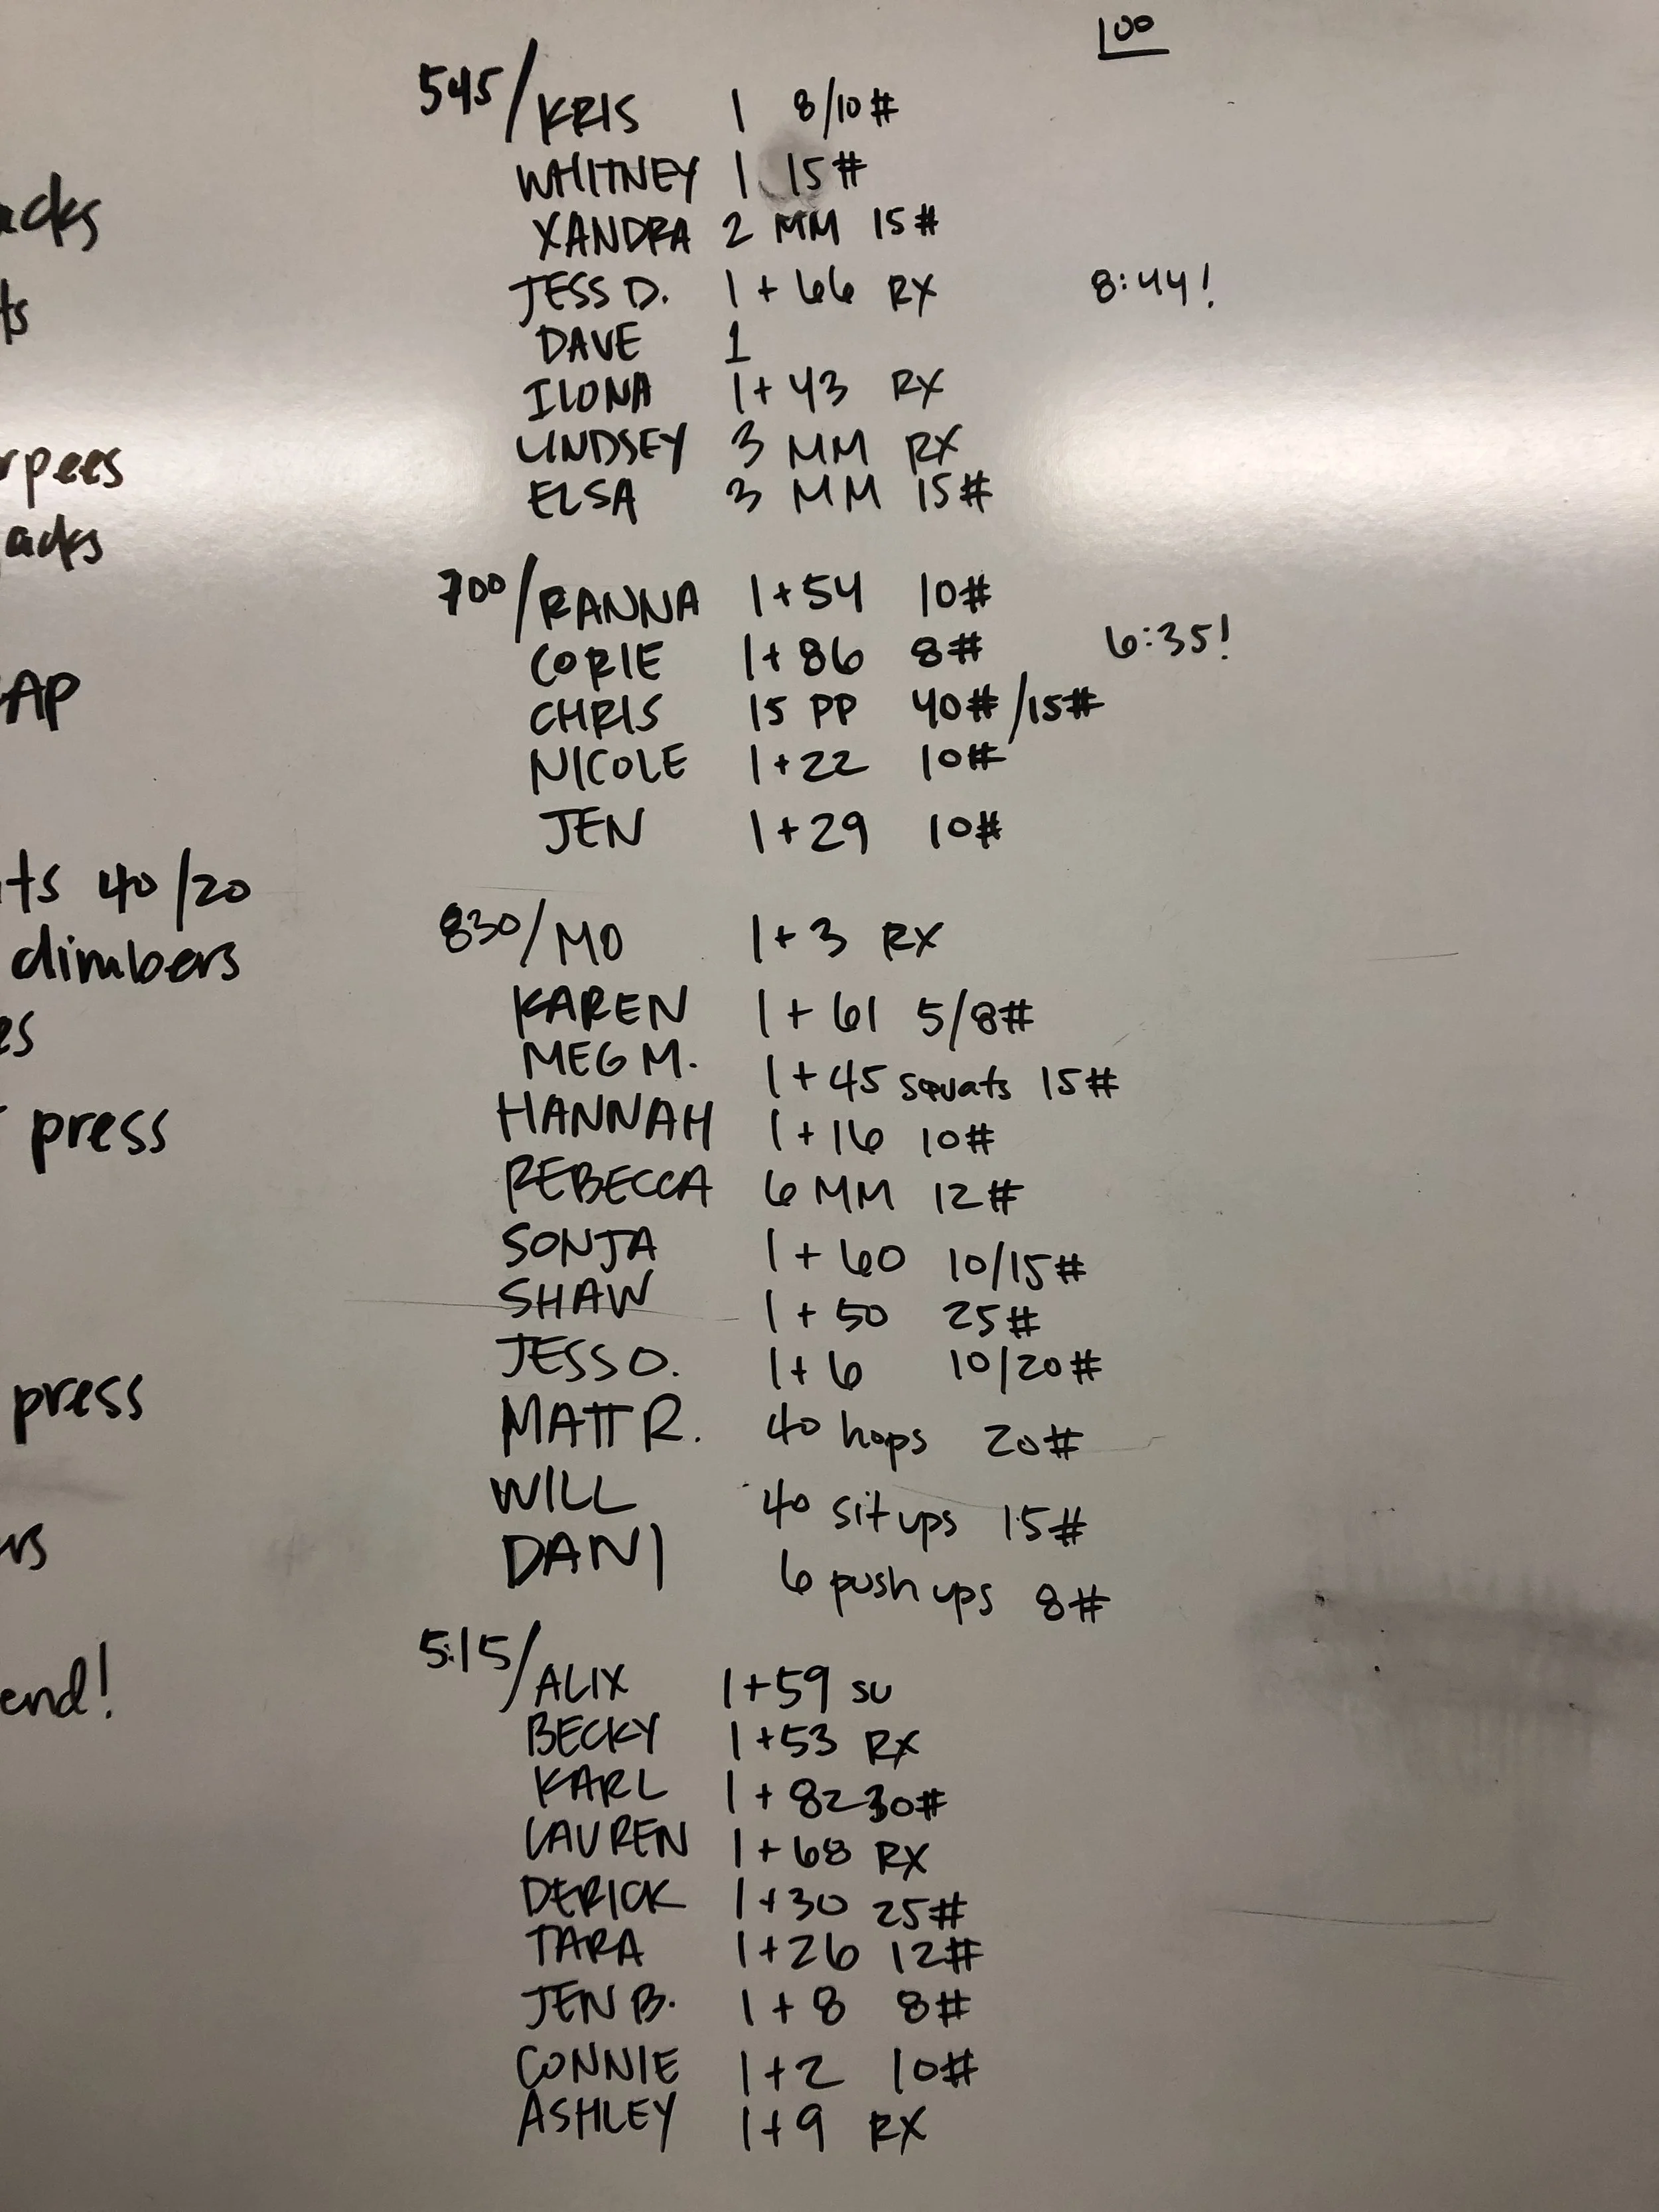 100
545/KRIS 1 8/10#
WHITNEY 1 15#
XANDRA 2 MM 15#
JESS D. 1+66 RX 8:44!
DAVE 1
ILONA 1+43 RX
LINDSEY 3 MM RX
ELSA 3 MM 15#
700/RANNA 1+54 10#
CORIE 1+86 8# 6:35!
CHRIS 15 PP 40#/15#
NICOLE 1+22 10#
JEN 1+29 10#
830/MO 1+3 RX
KAREN 1+61 5/8#
MEG M. 1+45 squats 15#
HANNAH 1+16 10#
REBECCA 6 MM 12#
SONJA 1+60 10/15#
SHAW 1+50 25#
JESS O. 1+6 10/20#
MATT R. 40 hops 20#
WILL 40 sit ups 15#
DANI 6 push ups 8#
5:15/ALIX 1+59 SU
BECKY 1+53 RX
KARL 1+82 30#
LAUREN 1+68 RX
DERICK 1+30 25#
TARA 1+26 12#
JEN B. 1+8 8#
CONNIE 1+2 10#
ASHLEY 1+9 RX
acks
ts
rpees
acks
AP
ts 40/20
climbers
es
press
press
rs
end!